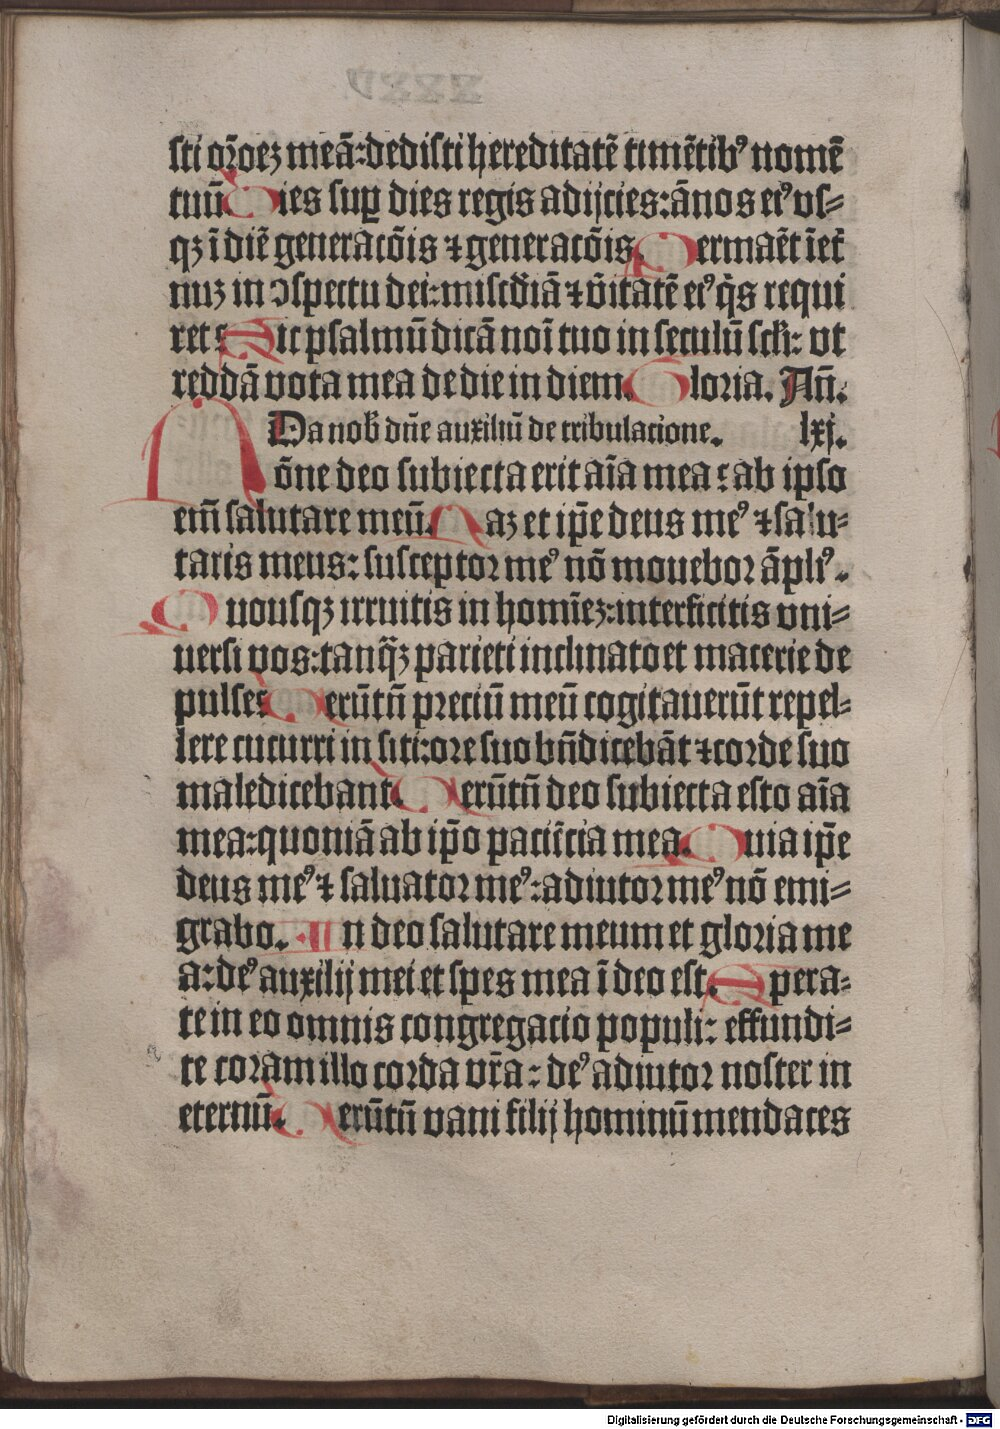 sti or̄oeꝫ meā: dedisti hereditatē timētibꝰ nomē
tuū Dies suꝑ dies regis adijcies: ānos eiꝰ vs⸗
qꝫ ī diē generacōis ⁊ generacōis. Permaēt ī et̄
nuꝫ in ↄspectu dei: misc̄diā ⁊ v̄itatē eiꝰ q̄s requi
ret: Sic psalmū dicā noī tuo in seculū sc̄li: vt
reddā vota mea de die in diem. Gloria. An̄.
Da nob̄ dn̄e auxiliū de tribulacione. lxj.
Nōne deo subiecta erit aīa mea: ab ipso
em̄ salutare meū. Naꝫ et ip̄e deus meꝰ ⁊ salu⸗
taris meus: susceptor meꝰ nō mouebor āpliꝰ.
Quousqꝫ irruitis in homīeꝫ: interficitis vni⸗
uersi vos: tanq̄ꝫ parieti inclinato et macerie de
pulse: Uerūtn̄ preciū meū cogitauerūt repel⸗
lere cucurri in siti: ore suo bn̄dicebāt ⁊ corde suo
maledicebant. Uerūtn̄ deo subiecta esto aīa
mea: quoniā ab ip̄o paciēcia mea. Quia ip̄e
deus meꝰ ⁊ saluator meꝰ: adiutor meꝰ nō emi⸗
grabo. In deo salutare meum et gloria me
a: deꝰ auxilij mei et spes mea ī deo est. Spera⸗
te in eo omnis congregacio populi: effundi⸗
te coram illo corda vr̄a: deꝰ adiutor noster in
eternū. Uerūtn̄ vani filij hominū mendaces
Digitalisierung gefördert durch die Deutsche Forschungsgemeinschaft - DFG